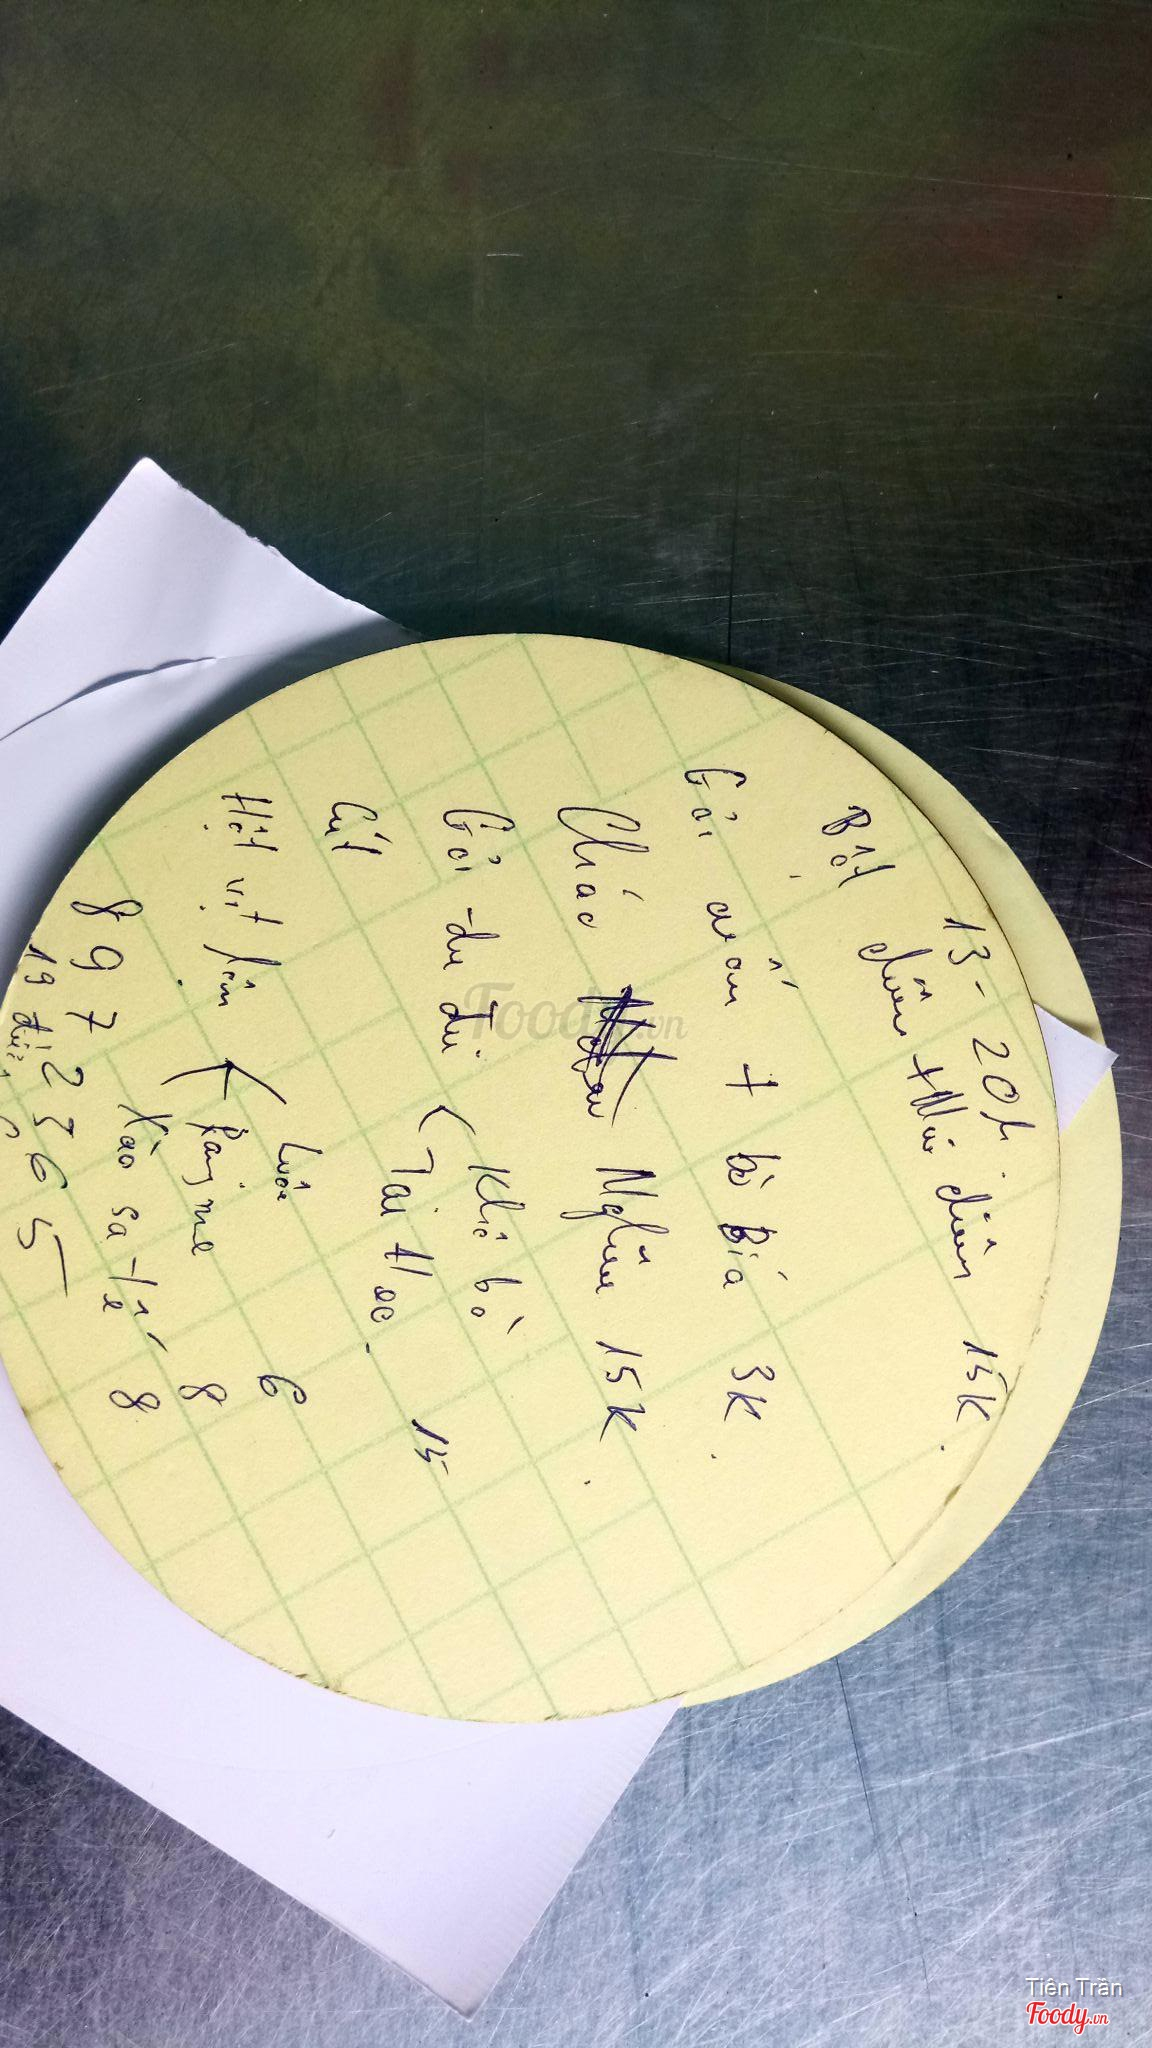 13 - 20h
Bột chiên + Nui chiên 15K.
Gỏi cuốn + bò Bía 3K.
Cháo Nghêu 15K.
Gỏi đu đủ < Khô bò
Tai Heo. 15
Cút
Hột vịt lộn Luộc 6
Rang me 8
Xào sa tế 8
8 9 7 2 3 6 5
19
Foody.vn
Tiên Trần
Foody.vn